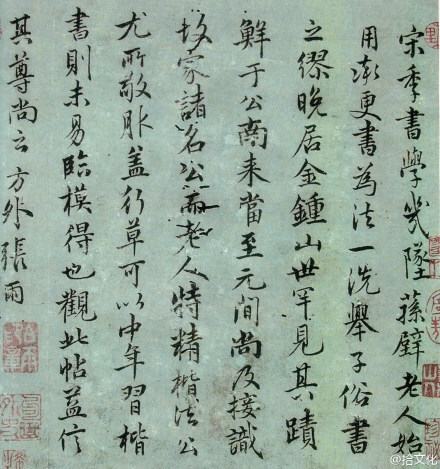 宋季書學幾墜蓀壁老人始
用更書為法一洗舉子俗書
之繆晚居金鍾山世罕見其蹟
鮮于公南来當至元間尚及接識
故家諸名公而老人特精楷法公
尤所敬服盖行草可以中年習楷
書則未易臨模得也觀此帖益信
其尊尚云方外張雨
@拾文化